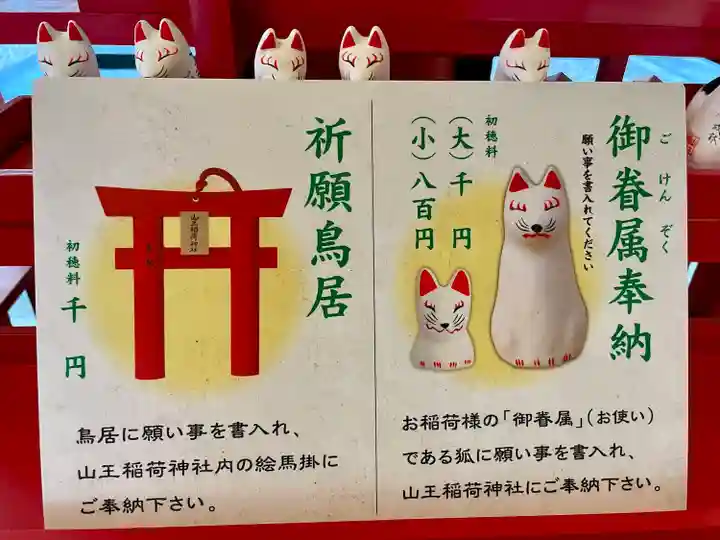 御眷属奉納
ごけんぞく
願い事を書入れてください
初穂料
(大)千円
(小)八百円
お稲荷様の「御眷属」(お使い)
である狐に願い事を書入れ、
山王稲荷神社にご奉納下さい。
祈願鳥居
山王稲荷神社
初穂料
千円
鳥居に願い事を書入れ、
山王稲荷神社内の絵馬掛に
ご奉納下さい。